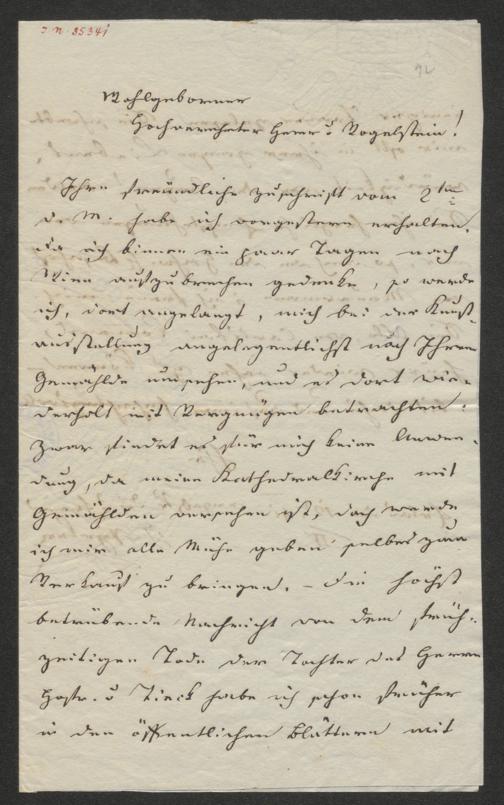 I. N. 35341
92
Wohlgeborner
Hochverehrter Herr v Vogelstein!
Ihre freundliche Zuschrift vom 2ten
d. M. habe ich vorgestern erhalten.
Da ich binnen ein paar Tagen nach
Wien aufzubrechen gedenke, so werde
ich, dort angelangt, mich bei der Kunst-
ausstellung angelegentlichst nach Ihrem
Gemählde umsehen, und es dort wie-
derholt mit Vergnügen betrachten.
Zwar findet es für mich keine Anwen-
dung, da meine Kathedralkirche mit
Gemählden versehen ist, doch werde
ich mir alle Mühe geben selbes zum
Verkauf zu bringen. – Die höchst
betrübende Nachricht von dem früh-
zeitigen Tode der Tochter des Herrn
Hofr. v Tieck habe ich schon früher
in den öffentlichen Blättern mit